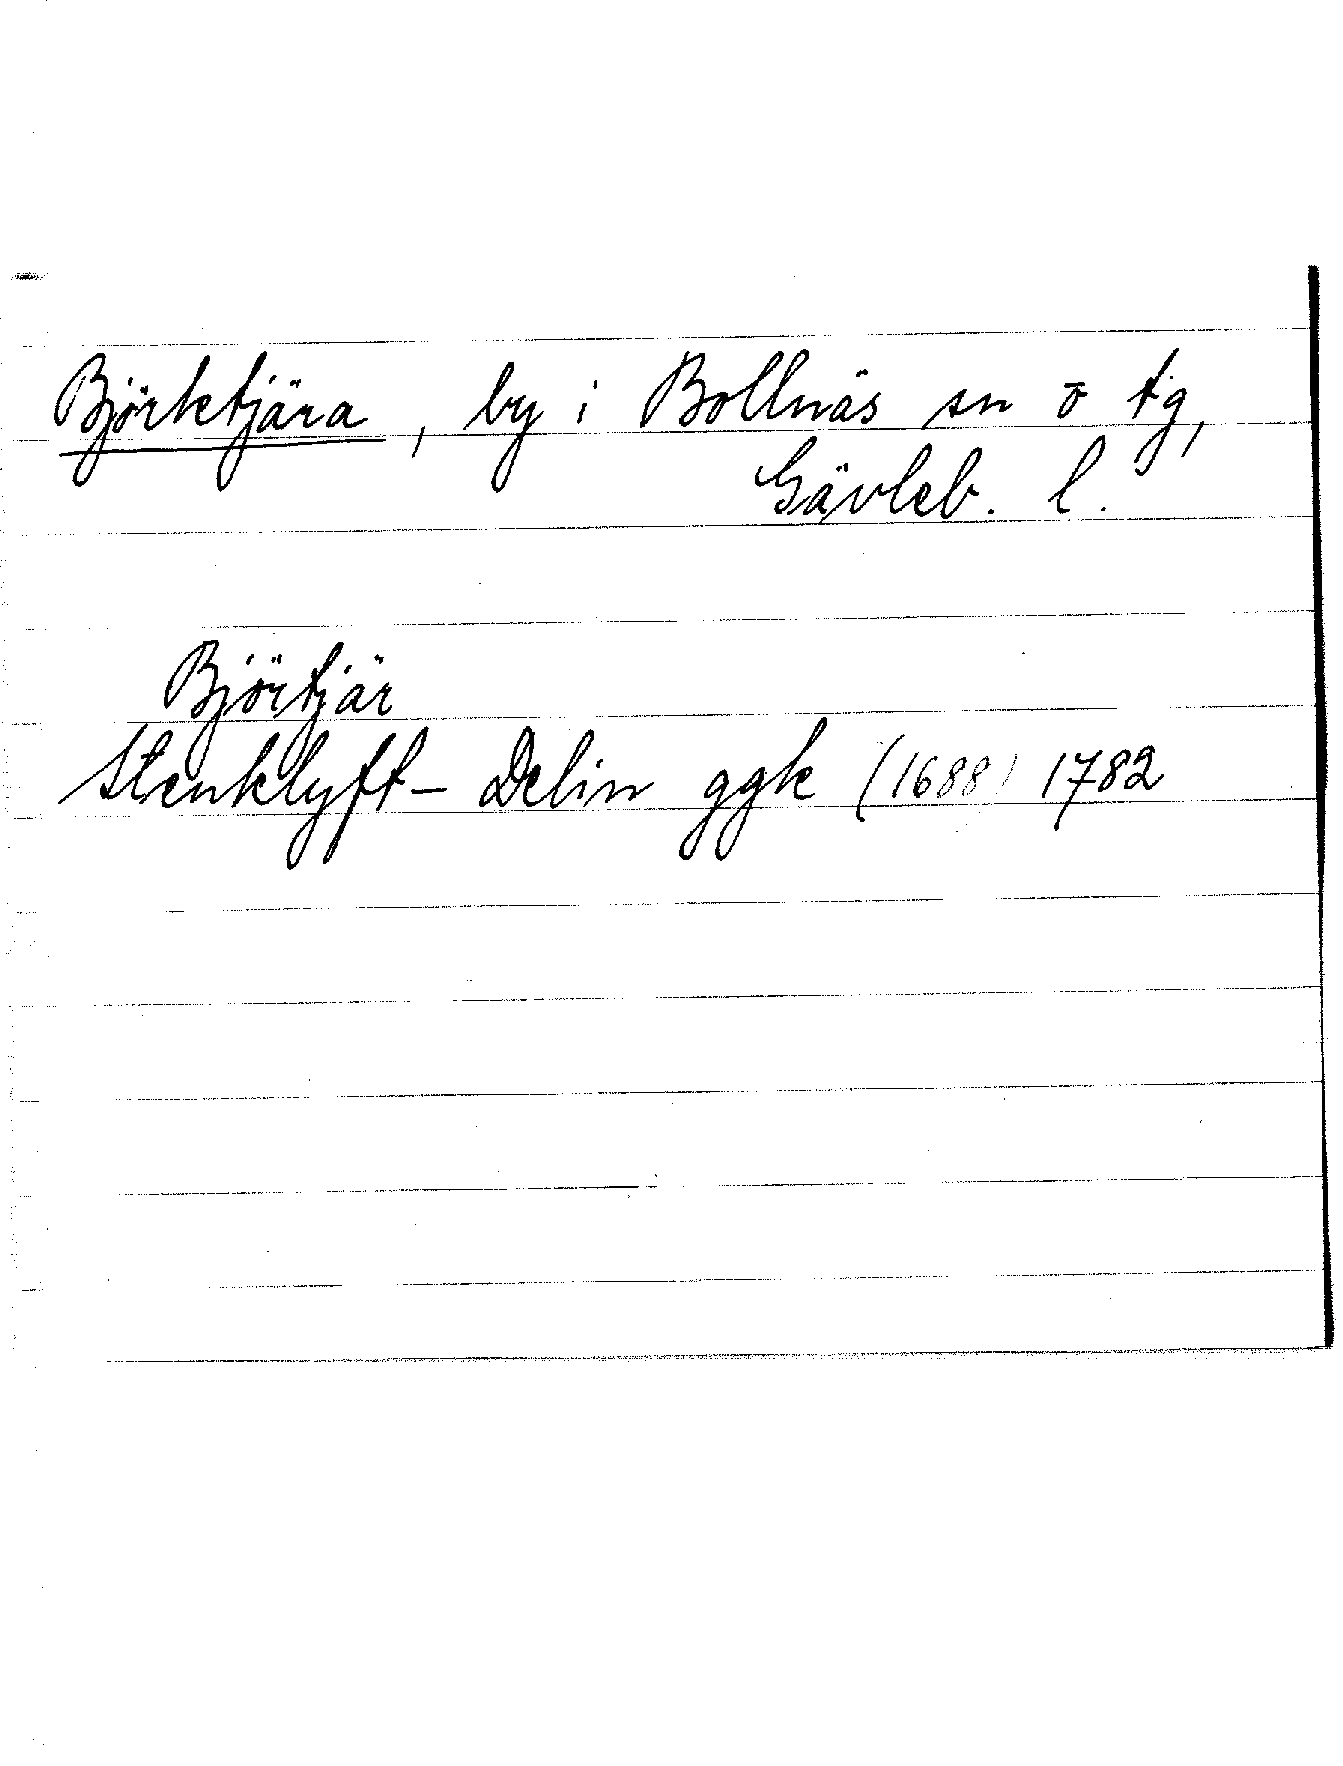 Björktjära, by i Bollnäs sn o tg,
Gävleb. l.
Björtjär
Stenklyft - Delin ggk (1688) 1782